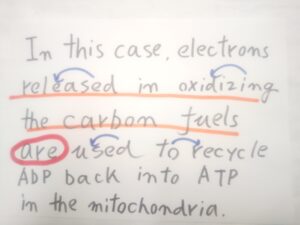 In this case, electrons
released in oxidizing
the carbon fuels
are used to recycle
ADP back into ATP
in the mitochondria.